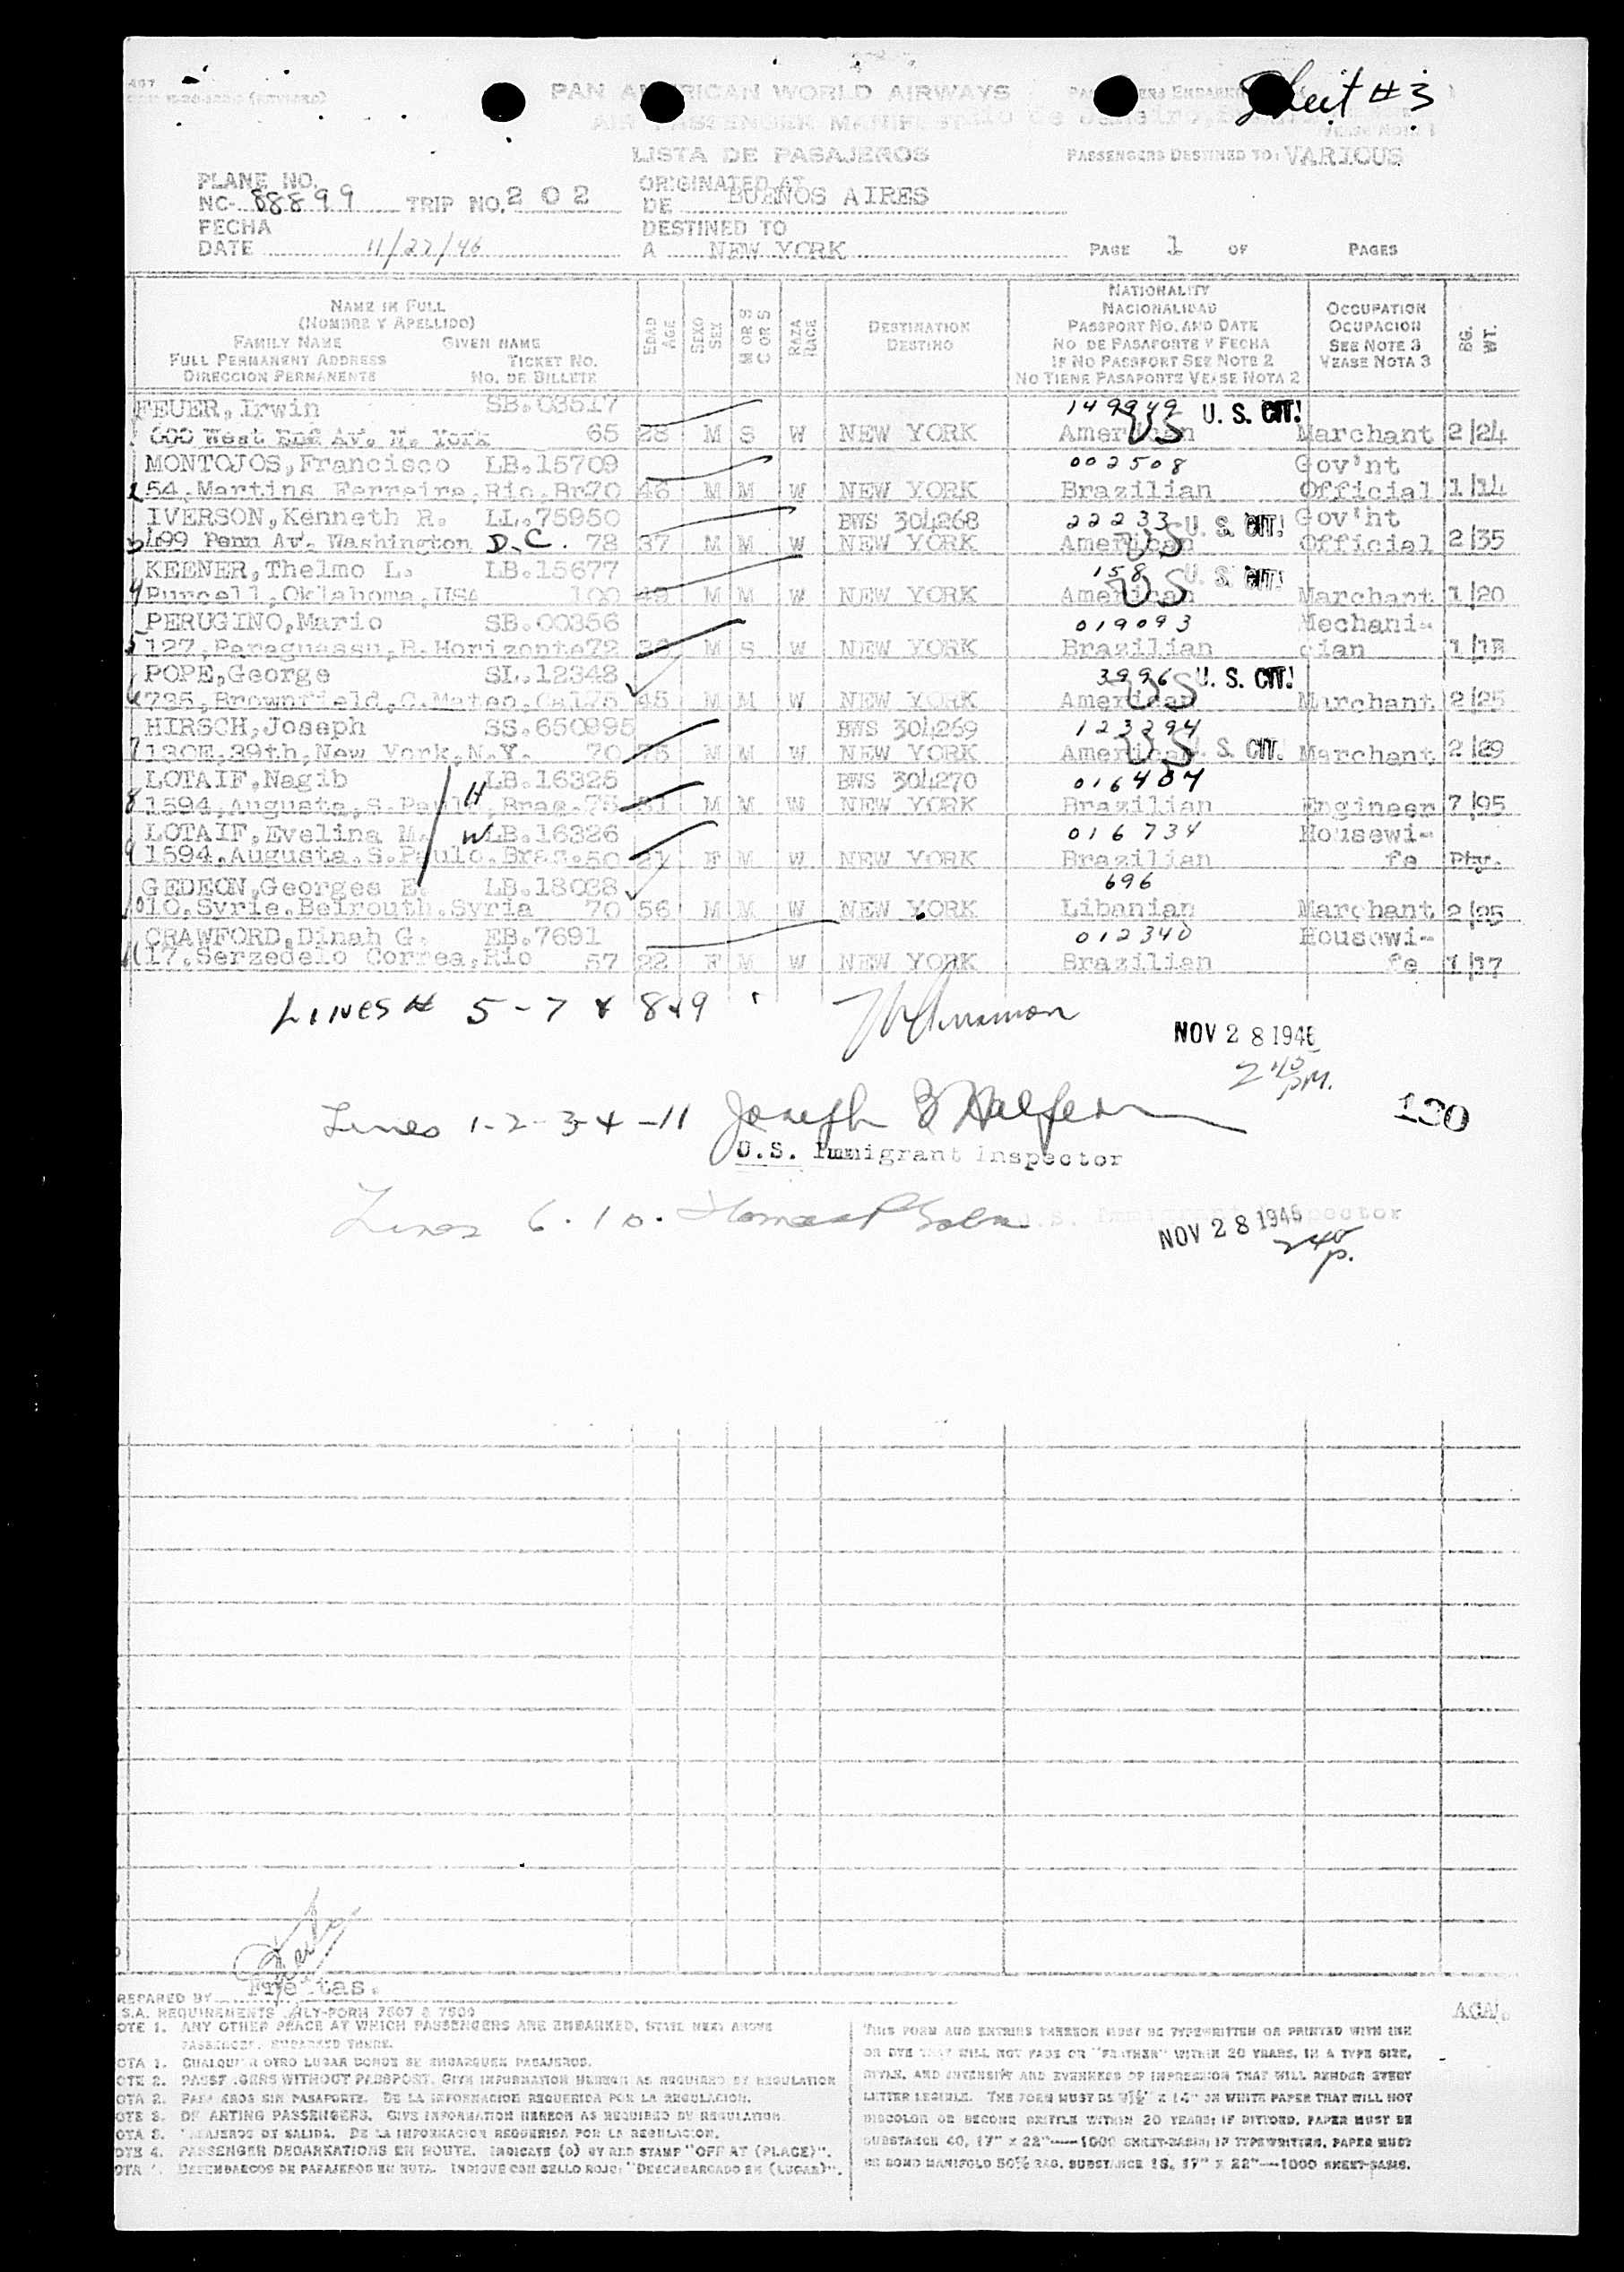 Sheet #3
PAN AMERICAN WORLD AIRWAYS
AIR PASSENGER MANIFEST
LISTA DE PASAJEROS
PASSENGERS EMBARKED
Rio de Janeiro,
PASSENGERS DESTINED TO: VARIOUS
PLANE NO.
NC- 88899 TRIP NO. 202
ORIGINATED AT
DE BUENOS AIRES
FECHA
DATE 11/27/46
DESTINED TO
A NEW YORK
PAGE 1 OF PAGES
NAME IN FULL
(NOMBRE Y APELLIDO)
FAMILY NAME GIVEN NAME
FULL PERMANENT ADDRESS TICKET NO.
DIRECCION PERMANENTE NO. DE BILLETE
EDAD AGE
SEXO SEX
M OR S C OR S
RAZA RACE
DESTINATION
DESTINO
NATIONALITY
NACIONALIDAD
PASSPORT NO. AND DATE
NO DE PASAPORTE Y FECHA
IF NO PASSPORT SEE NOTE 2
NO TIENE PASAPORTE VEASE NOTA 2
OCCUPATION
OCUPACION
SEE NOTE 3
VEASE NOTA 3
BG. WT.
FEUER, Irwin SB.03517 149949 U. S. CIT!
1 600 West End Av. N. York 65 28 M S W NEW YORK American US Marchant 2/24
MONTOJOS,Francisco LB.15709 002508 Gov'nt
2 54,Martins Ferreira,Rio,Br70 46 M M W NEW YORK Brazilian Official 1/14
IVERSON,Kenneth R. LL.75950 BWS 304268 22233 U. S. CIT! Gov'nt
3 499 Penn Av. Washington D.C. 78 37 M M W NEW YORK American US Official 2/35
KEENER,Thelmo L. LB.15677 158 U. S. CIT!
4 Purcell,Oklahoma,USA 100 49 M M W NEW YORK American US Marchant 1/20
PERUGINO,Mario SB.00356 019093 Mechani-
5 127,Paraguassu,B.Horizonte72 M S W NEW YORK Brazilian cian
POPE,George SL.12348 3996 U. S. CIT!
6 725,Brownfield,C.Mateo,Cal75 45 M M W NEW YORK American US Marchant 2/25
HIRSCH,Joseph SS.650995 BWS 304269 123294
7 130E,39th,New York,N.Y. 70 75 M M W NEW YORK American US U. S. CIT. Marchant 2/29
LOTAIF,Nagib H LB.16325 BWS 304270 016484
8 1594,Augusta,S.Paulo,Bras.75 31 M M W NEW YORK Brazilian Engineer 7/95
LOTAIF,Evelina M. W LB.16326 016734 Housewi-
9 1594,Augusta,S.Paulo,Bras.50 21 F M W NEW YORK Brazilian fe Pty.
GEDEON,Georges E. LB.18038 696
10 10,Syrie,Beirouth,Syria 70 56 M M W NEW YORK Libanian Marchant 2/25
CRAWFORD,Dinah G. EB.7691 012340 Housewi-
11 17,Serzedelo Correa,Rio 57 22 F M W NEW YORK Brazilian fe 1/17
LINES # 5-7 & 8&9
NOV 28 1946
2 45 PM.
130
Lines 1-2-3-4-11 Joseph Halfern
U.S. Immigrant Inspector
Lines 6.10.
U.S. Immigrant Inspector
NOV 28 1946
2 45 p.
PREPARED BY Freitas.
S.A. REQUIREMENTS ONLY-FORM 7507 & 7509
NOTE 1. ANY OTHER PLACE AT WHICH PASSENGERS ARE EMBARKED, STATE NEXT ABOVE
PASSENGERS EMBARKED THERE.
NOTA 1. CUALQUIER OTRO LUGAR DONDE SE EMBARQUEN PASAJEROS.
NOTE 2. PASSENGERS WITHOUT PASSPORT. GIVE INFORMATION HEREON AS REQUIRED BY REGULATION
NOTA 2. PASAJEROS SIN PASAPORTE. DE LA INFORMACION REQUERIDA POR LA REGULACION.
NOTE 3. DEPARTING PASSENGERS. GIVE INFORMATION HEREON AS REQUIRED BY REGULATION.
NOTA 3. PASAJEROS DE SALIDA. DE LA INFORMACION REQUERIDA POR LA REGULACION.
NOTE 4. PASSENGER DEBARKATIONS EN ROUTE. INDICATE (D) BY RED STAMP "OFF AT (PLACE)".
NOTA 4. DESEMBARCOS DE PASAJEROS EN RUTA. INDIQUE CON SELLO ROJO: "DESEMBARCADO EN (LUGAR)".
THIS FORM AND ENTRIES THEREON MUST BE TYPEWRITTEN OR PRINTED WITH INK
OR DYE THAT WILL NOT FADE OR "FEATHER" WITHIN 20 YEARS, IN A TYPE SIZE,
STYLE, AND INTENSITY AND EVENNESS OF IMPRESSION THAT WILL RENDER EVERY
LETTER LEGIBLE. THE FORM MUST BE 9½" X 14" ON WHITE PAPER THAT WILL NOT
DISCOLOR OR BECOME BRITTLE WITHIN 20 YEARS; IF DITTOED, PAPER MUST BE
SUBSTANCE 40, 17" X 22"—1000 SHEET-BASIS; IF TYPEWRITTEN, PAPER MUST
BE BOND MANIFOLD 50% RAG, SUBSTANCE 16, 17" X 22"—1000 SHEET-BASIS.